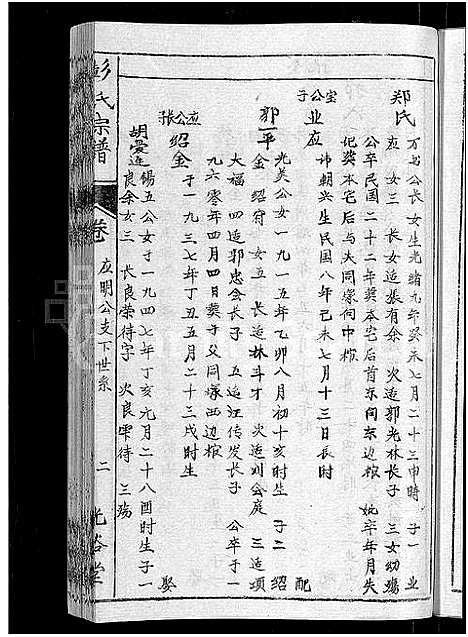 郑氏
万七公长女生光绪九年癸未七月二十三申時 子一 业
应 女三 长女造張有余 次造郭光林长子 三女幼殤
公卒民国二十二年葬本宅后首东向东边棺 妣卒年月失
记葬本宅后与夫同塚向中棺
宝公子
业应
讳朝兴生民國八年己未七月十三日辰时 配
郭一平
光美公女一九一五年乙卯八月初十亥时生 子二 绍
金 绍府 女五 长造林斗才 次造刘公庭 三造項
大福 四造郭忠会长子 五造汪传发长子 公卒于一
九六零年四月四日葬于父同塚西边棺
应公張
绍金
于一九三七年丁丑五月二十三戌时生 娶
胡爱莲
锡五公女于一九四七年丁亥九月二十八酉时生子一
良余女三 长良荣待字 次良雲待 三殇
彭氏宗譜
卷
应明公支下世系
二
光裕堂